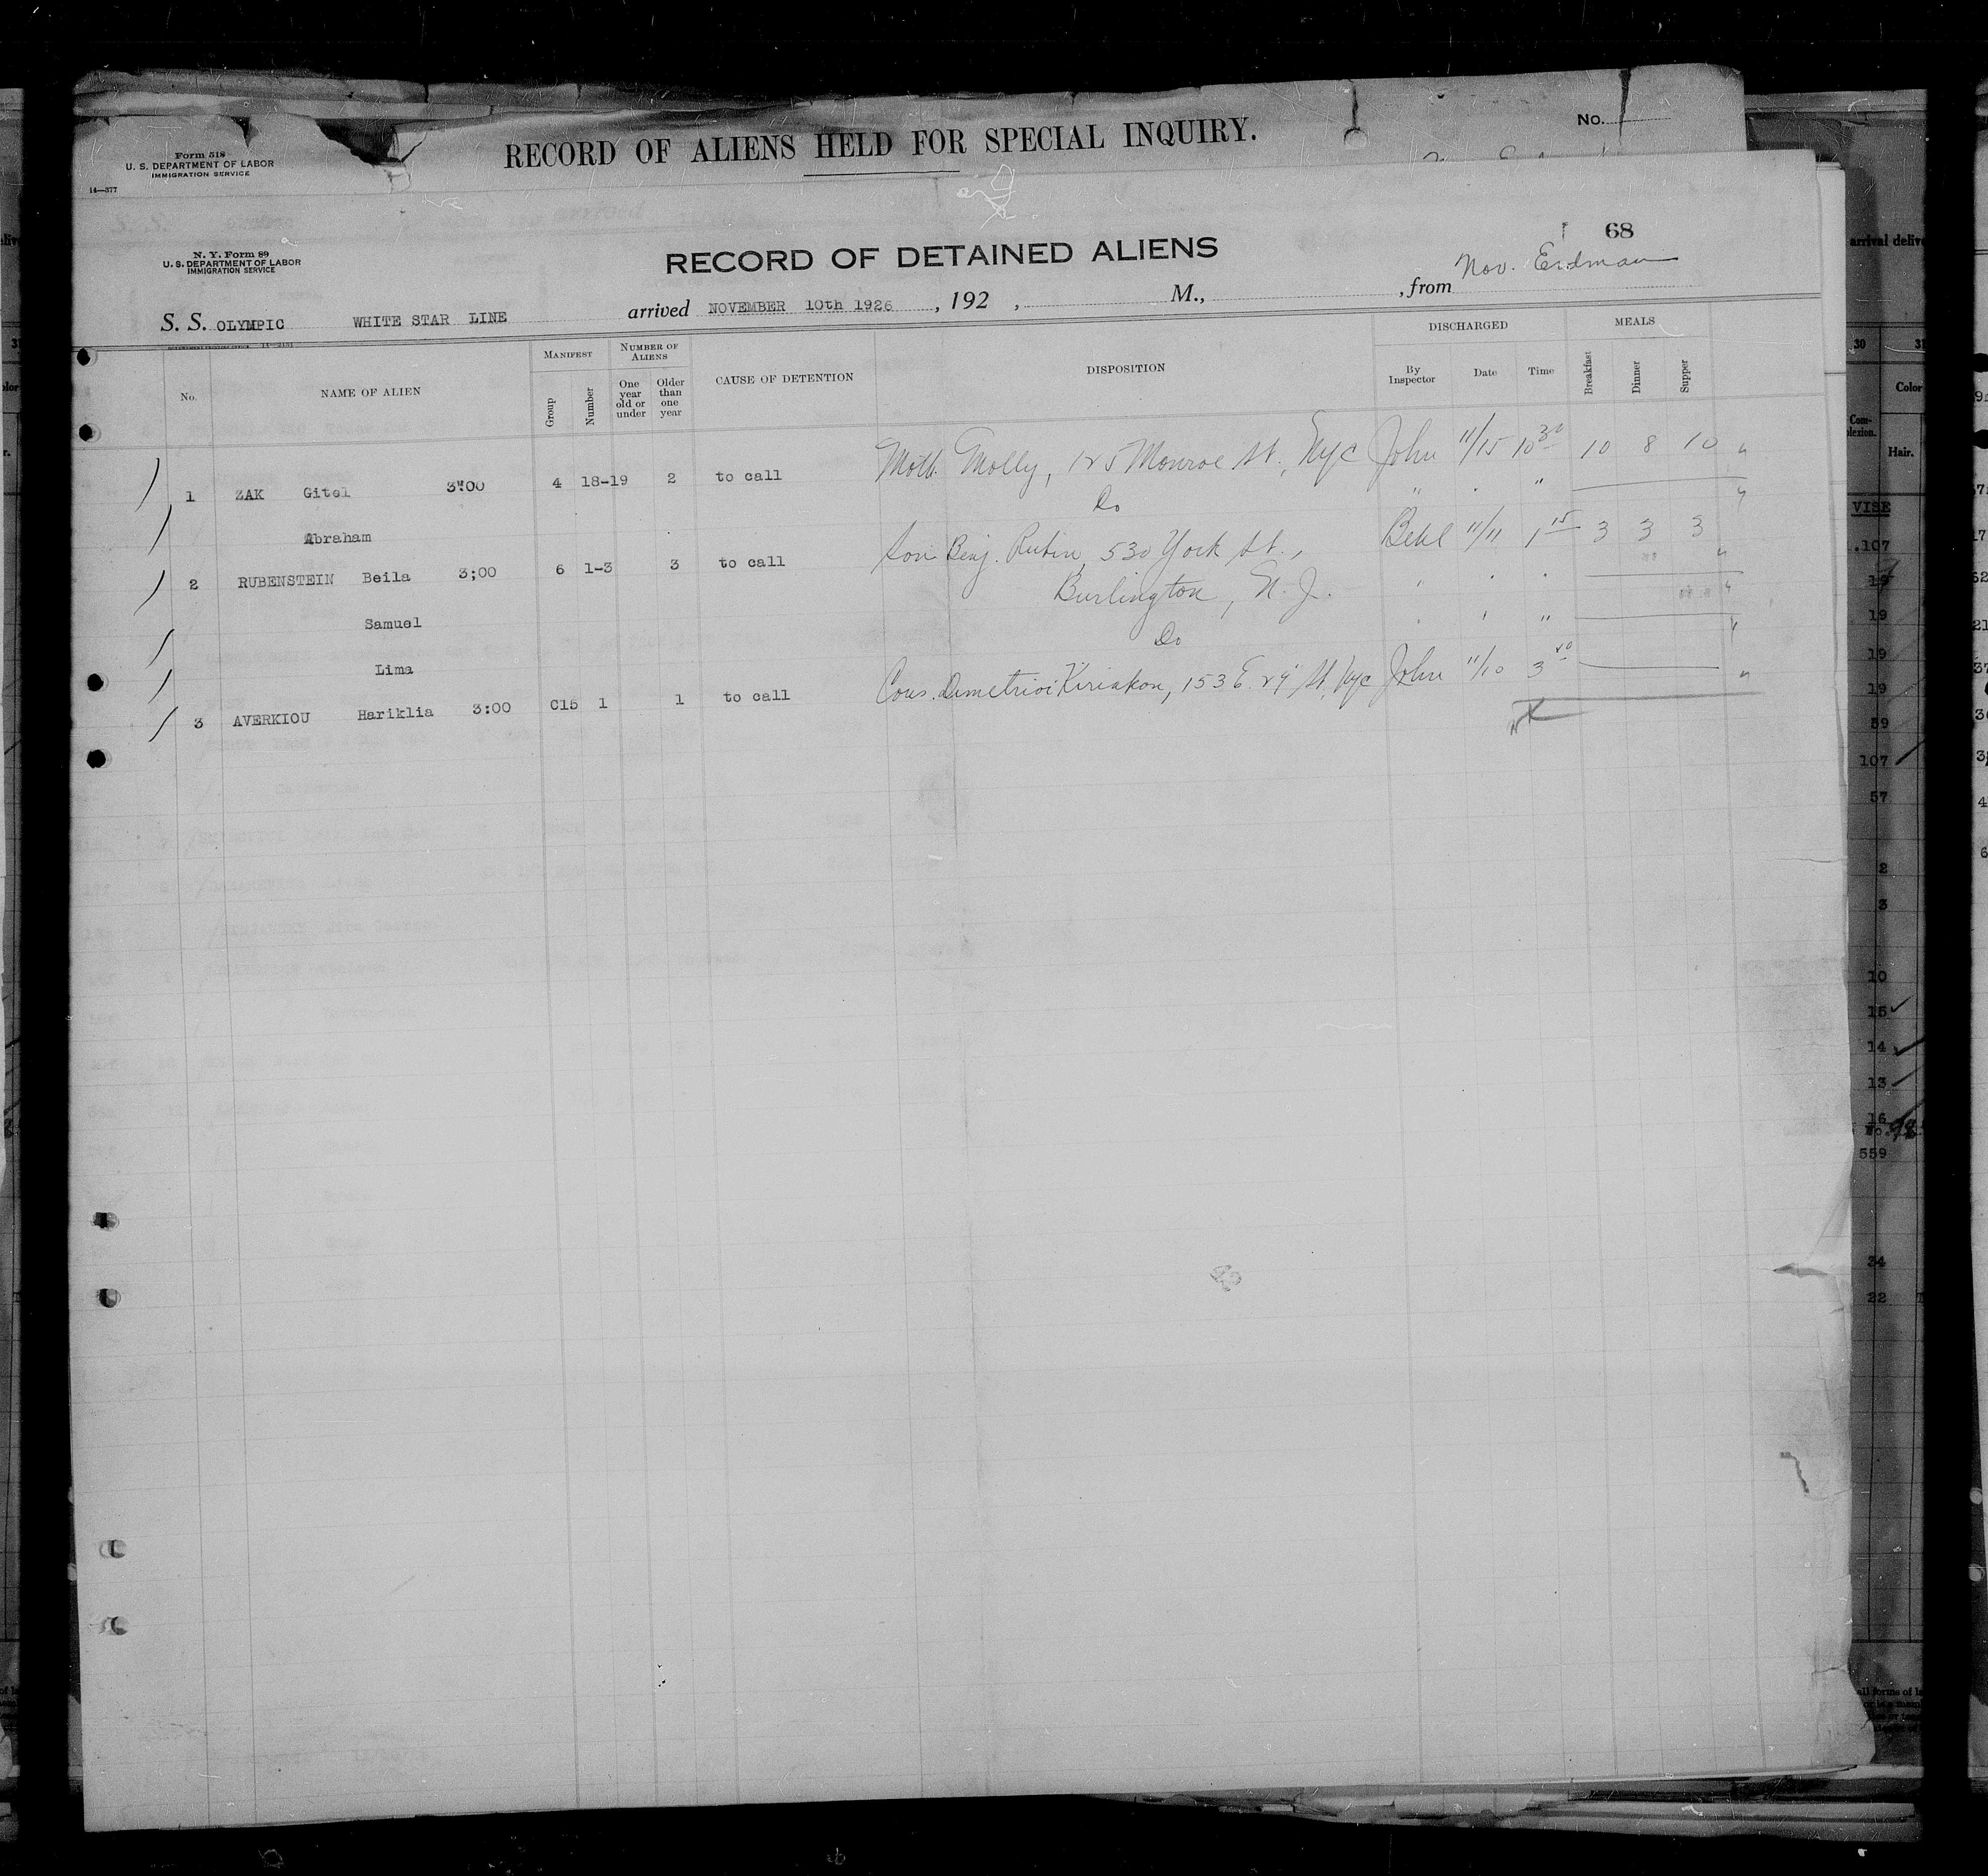 Form 518
U. S. DEPARTMENT OF LABOR
IMMIGRATION SERVICE
14—377
RECORD OF ALIENS HELD FOR SPECIAL INQUIRY.
No.
68
N. Y. Form 89
U. S. DEPARTMENT OF LABOR
IMMIGRATION SERVICE
RECORD OF DETAINED ALIENS
S. S. OLYMPIC WHITE STAR LINE arrived NOVEMBER 10th 1926, 192 , M., , from Nov. Erdman
No. NAME OF ALIEN MANIFEST Group Number NUMBER OF ALIENS One year old or under Older than one year CAUSE OF DETENTION DISPOSITION DISCHARGED By Inspector Date Time MEALS Breakfast Dinner Supper
1 ZAK Gitel 3:00 4 18-19 2 to call Moth. Molly, 125 Monroe St., Nyc John 11/15 10 30 10 8 10 "
Abraham Do " "
2 RUBENSTEIN Beila 3;00 6 1-3 3 to call Son Benj. Rubin, 530 York St., Behl 11/11 1 15 3 3 3 "
Samuel Burlington, N. J. "
Lima Do "
3 AVERKIOU Hariklia 3:00 C15 1 1 to call Cous. Dimetrioi Kiriakou, 153 E. 29 St. Nyc John 11/10 3 "
arrival
30
Color
Complexion.
Hair.
VISE
107
19
19
19
19
59
107
57
2
3
10
15
14
13
16
559
34
22
all forms of